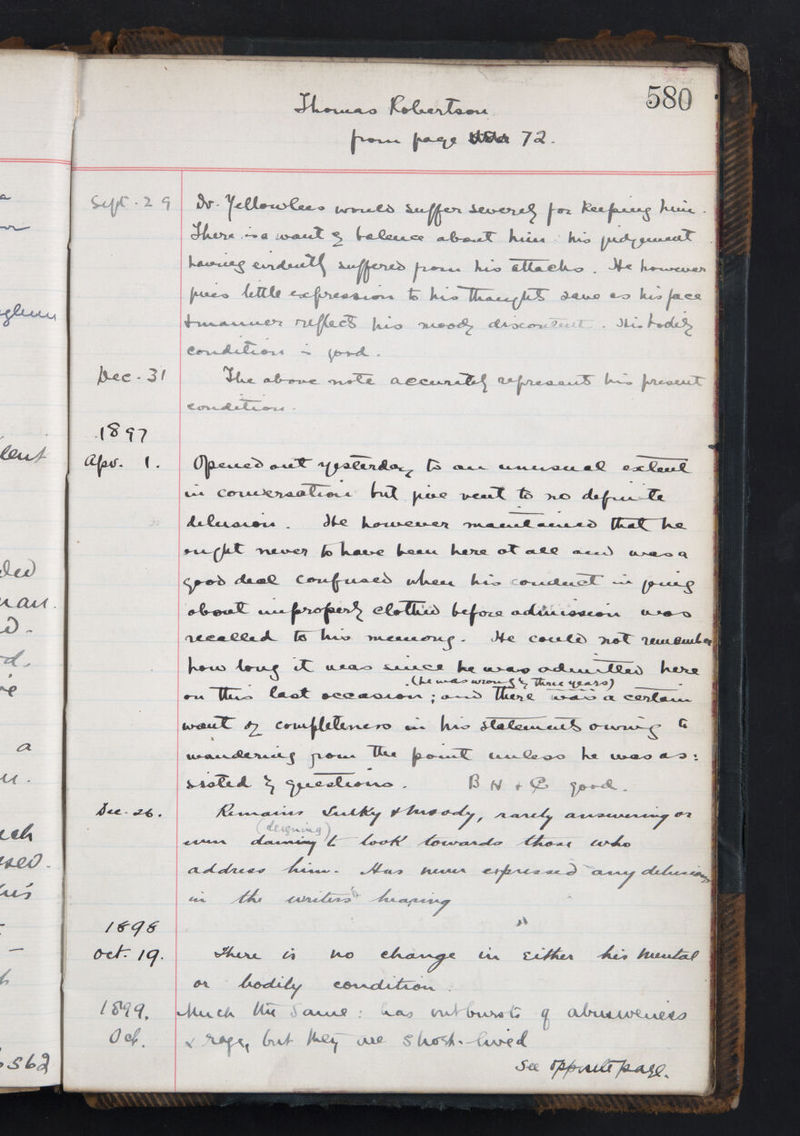 580
Thomas Robertson
from page 72.
Sept. 29 Dr. Yellowlees would suffer severely for keeping him.
There is a want of balance about him his judgement
having evidently suffered from his attacks. He however
gives little expression to his thoughts save as his face
& manner reflects his moody discontent. His bodily
condition is good.
Dec. 31 The above note accurately represents his present
condition.
1897
Apr. 1. Opened out yesterday to an unusual extent
in conversation but gave vent to no definite
delusion. He however maintained that he
ought never to have been here at all and was a
good deal confused when his conduct in going
about improperly clothed before admission was
recalled to his memory. He could not remember
how long it was since he was admitted here
(he was wrong by three years)
on this last occasion; and there was a certain
want of completeness in his statements owing to
wandering from the point unless he was as:
sisted by questions. B H + good.
Dec. 26. Remains sulky & moody, rarely answering or
(deigning)
even daining to look towards those who
address him. Has never expressed any delusions
in the writers hearing
1898
Oct. 19. There is no change in either his mental
or bodily condition.
1899. Much the same: has outbursts of abusiveness
Oct. & rage, but they are short-lived
See opposite page.
562